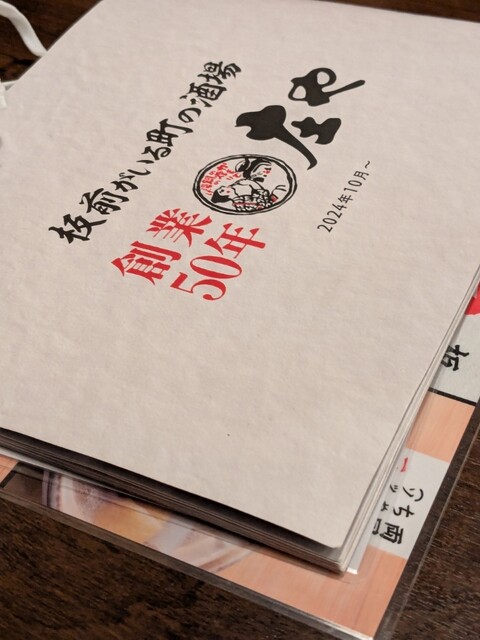 板前がいる町の酒場
庄や
創業
50年
2024年10月～